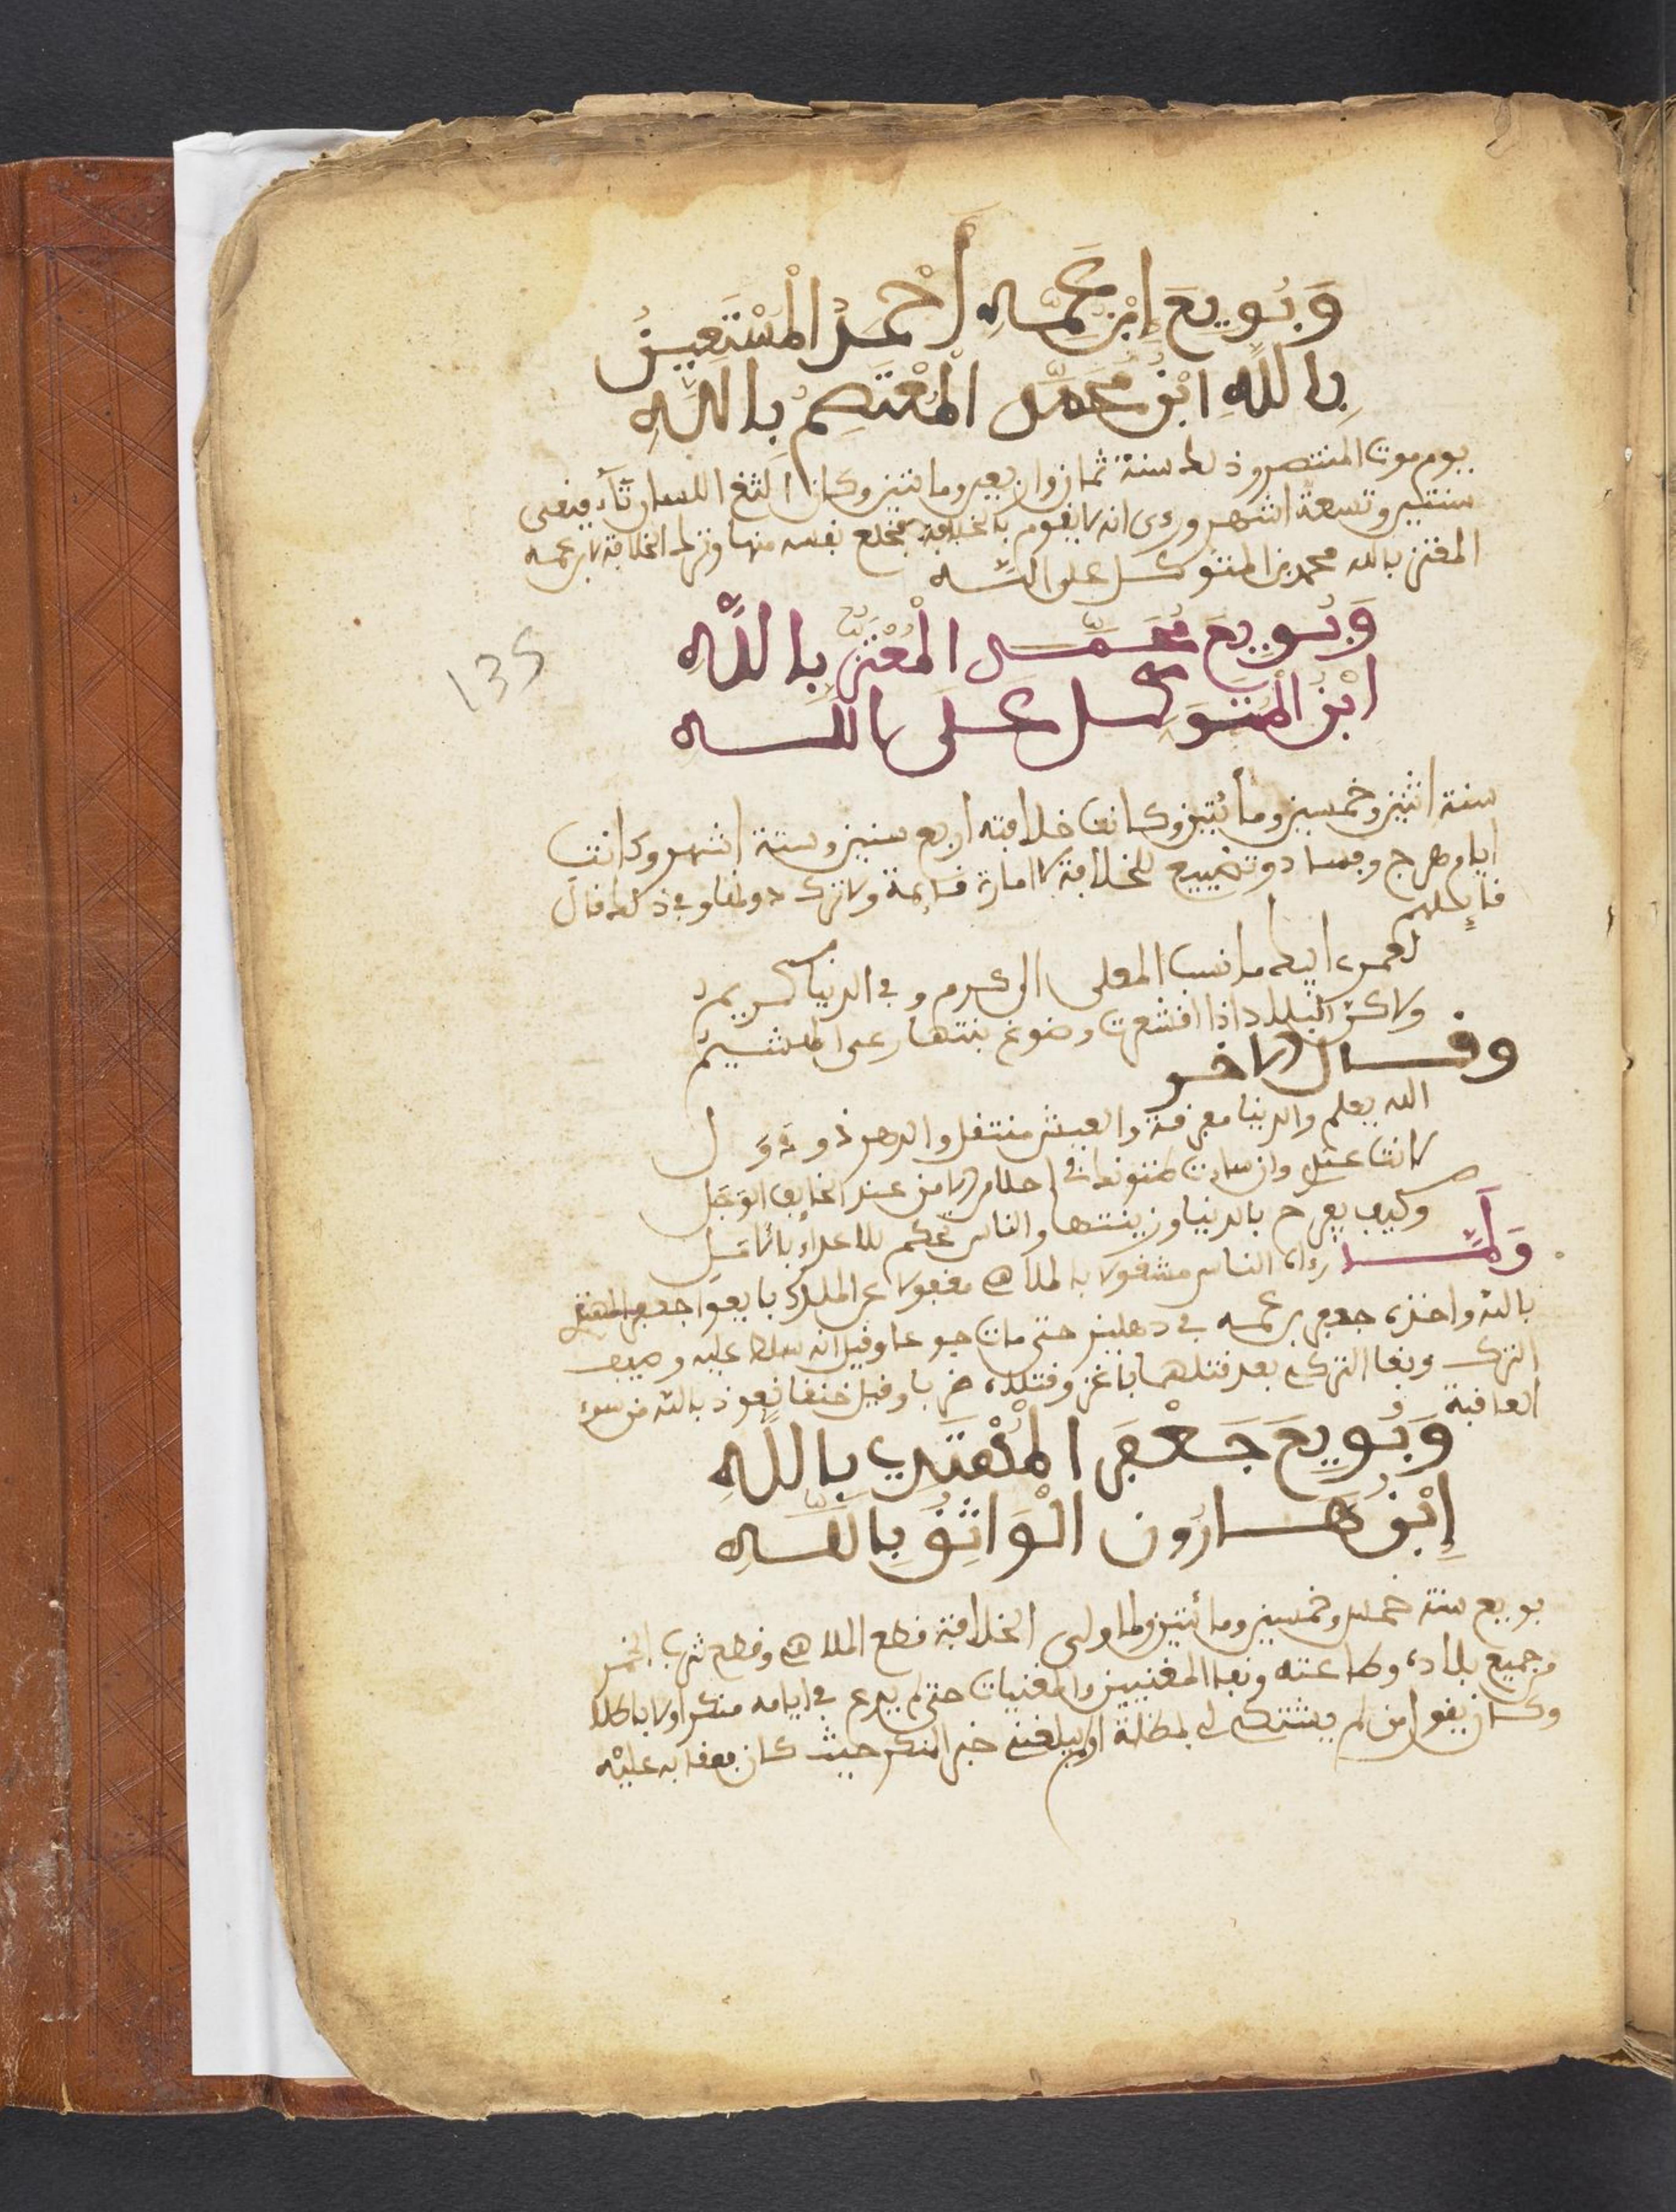 وَبُويِعَ إِبْنُ عَمِّهِ أَحْمَدُ الْمُسْتَعِينُ
بِاللَّهِ ابْنُ مُحَمَّد الْمُعْتَصِمُ بِاللَّهِ
يوم موت المنتصر وذلك سنة ثمان واربعين ومائتين وكان الثغ اللسان
سنتين وتسعة اشهر ورءى انه لا يقوم بالخلافة فخلع نفسه منها وترك الخلافة لابن عمه
المعتز بالله محمد بن المتوكل على الله
وَبُويِعَ مُحَمَّد الْمُعْتَزُّ بِاللَّهِ
ابْنُ الْمُتَوَكِّل عَلَى اللَّه
سنة اثنين وخمسين ومأئتين وكانت خلافته اربع سنين وستة اشهر وكانت
ايام هرج وفساد وتضييع للخلافة لا امارة قائمة ولا ترك وفي ذلك قال
قايلهم
لعمر ابيك ما نسب المعلى الى كرم وفي الدنيا كريم
ولاكن البلاد اذا اقشعرت وضوع نبتها رعى الهشيم
وقال الاخر
الله يعلم والدنيا مفرقة والعيش منتقل والدهر ذو دُوَل
وان احلام الامن عند الخايف الوَجَل
وكيف يفرح بالدنيا وزينتها والناس تحكم للاعداء
وَلَمَّا رءا الناس مشغولا بالملاهي مغفولا عن الملك بايعوا جعفر
بالله واخذه جعفر بن عمه في دهليز حتى مات جوعا وقيل انه سلط عليه وصيف
التركي وبغا التركي بعد قتلهما باغر وقتله ضربا وقيل خنقا نعوذ بالله من سوء
العاقبة
وَبُويِعَ جَعْفَر الْمُهْتَدِي بِاللَّهِ
إِبْنُ هَارُون الْوَاثِقُ بِاللَّهِ
بويع سنة خمس وخمسين ومائتين ولما ولى الخلافة قطع الملاهي وقطع شرب الخمر
وجميع بلاده وطاعته ونفا المغنيين والمغنيات حتى لم يدع في ايامه منكرا ولا باطلا
وكان يقول من لم يشتك لي بمظلمة او لم يبلغني خبر المنكر حيث كان
135